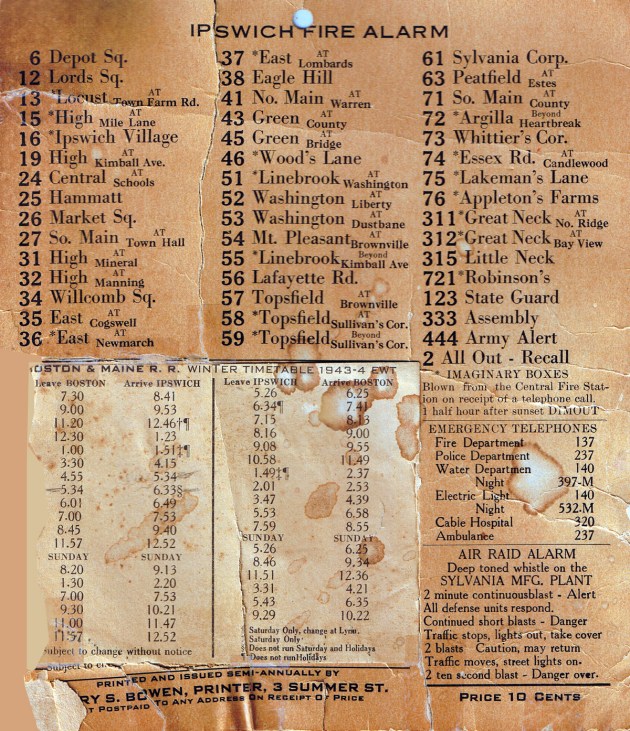 IPSWICH FIRE ALARM
6 Depot Sq.
12 Lords Sq.
13 *Locust AT Town Farm Rd.
15 *High AT Mile Lane
16 *Ipswich Village
19 High AT Kimball Ave.
24 Central AT Schools
25 Hammatt
26 Market Sq.
27 So. Main AT Town Hall
31 High AT Mineral
32 High AT Manning
34 Willcomb Sq.
35 East AT Cogswell
36 *East AT Newmarch
37 *East AT Lombards
38 Eagle Hill
41 No. Main AT Warren
43 Green AT County
45 Green AT Bridge
46 *Wood's Lane
51 *Linebrook AT Washington
52 Washington AT Liberty
53 Washington AT Dustbane
54 Mt. Pleasant AT Brownville
55 *Linebrook Beyond Kimball Ave
56 Lafayette Rd.
57 Topsfield AT Brownville
58 *Topsfield AT Sullivan's Cor.
59 *Topsfield Beyond Sullivan's Cor.
61 Sylvania Corp.
63 Peatfield AT Estes
71 So. Main AT County
72 *Argilla Beyond Heartbreak
73 Whittier's Cor.
74 *Essex Rd. AT Candlewood
75 *Lakeman's Lane
76 *Appleton's Farms
311 *Great Neck AT No. Ridge
312 *Great Neck AT Bay View
315 Little Neck
721 *Robinson's
123 State Guard
333 Assembly
444 Army Alert
2 All Out - Recall
* IMAGINARY BOXES
Blown from the Central Fire Stat-
ion on receipt of a telephone call.
1 half hour after sunset DIMOUT
EMERGENCY TELEPHONES
Fire Department 137
Police Department 237
Water Departmen 140
Night 397-M
Electric Light 140
Night 532-M
Cable Hospital 320
Ambulance 237
AIR RAID ALARM
Deep toned whistle on the
SYLVANIA MFG. PLANT
2 minute continuousblast - Alert
All defense units respond.
Continued short blasts - Danger
Traffic stops, lights out, take cover
2 blasts Caution, may return
Traffic moves, street lights on.
2 ten second blast - Danger over.
BOSTON & MAINE R. R. WINTER TIMETABLE 1943-4 EWT
Leave BOSTON Arrive IPSWICH
7.30 8.41
9.00 9.53
11.20 12.46†¶
12.30 1.23
1.00 1.51‡¶
3:30 4.15
4.55 5.34
5.34 6.33§
6.01 6.49
7.00 7.53
8.45 9.40
11.57 12.52
SUNDAY SUNDAY
8.20 9.13
1.30 2.20
7.00 7.53
9.30 10.21
11.00 11.47
11.57 12.52
Subject to change without notice
Subject to
Leave IPSWICH Arrive BOSTON
5.26 6.25
6.34¶ 7.41
7.15 8.13
8.16 9.00
9.08 9.55
10.58 11.49
1.49‡¶ 2.37
2.01 2.53
3.47 4.39
5.53 6.58
7.59 8.55
SUNDAY SUNDAY
5.26 6.25
8.46 9.34
11.51 12.36
3.31 4.21
5.43 6.35
9.29 10.22
Saturday Only, change at Lynn.
Saturday Only.
Does not run Saturday and Holidays
Does not run Holidays
PRINTED AND ISSUED SEMI-ANNUALLY BY
RY S. BOWEN, PRINTER, 3 SUMMER ST.
T POSTPAID TO ANY ADDRESS ON RECEIPT OF PRICE
PRICE 10 CENTS